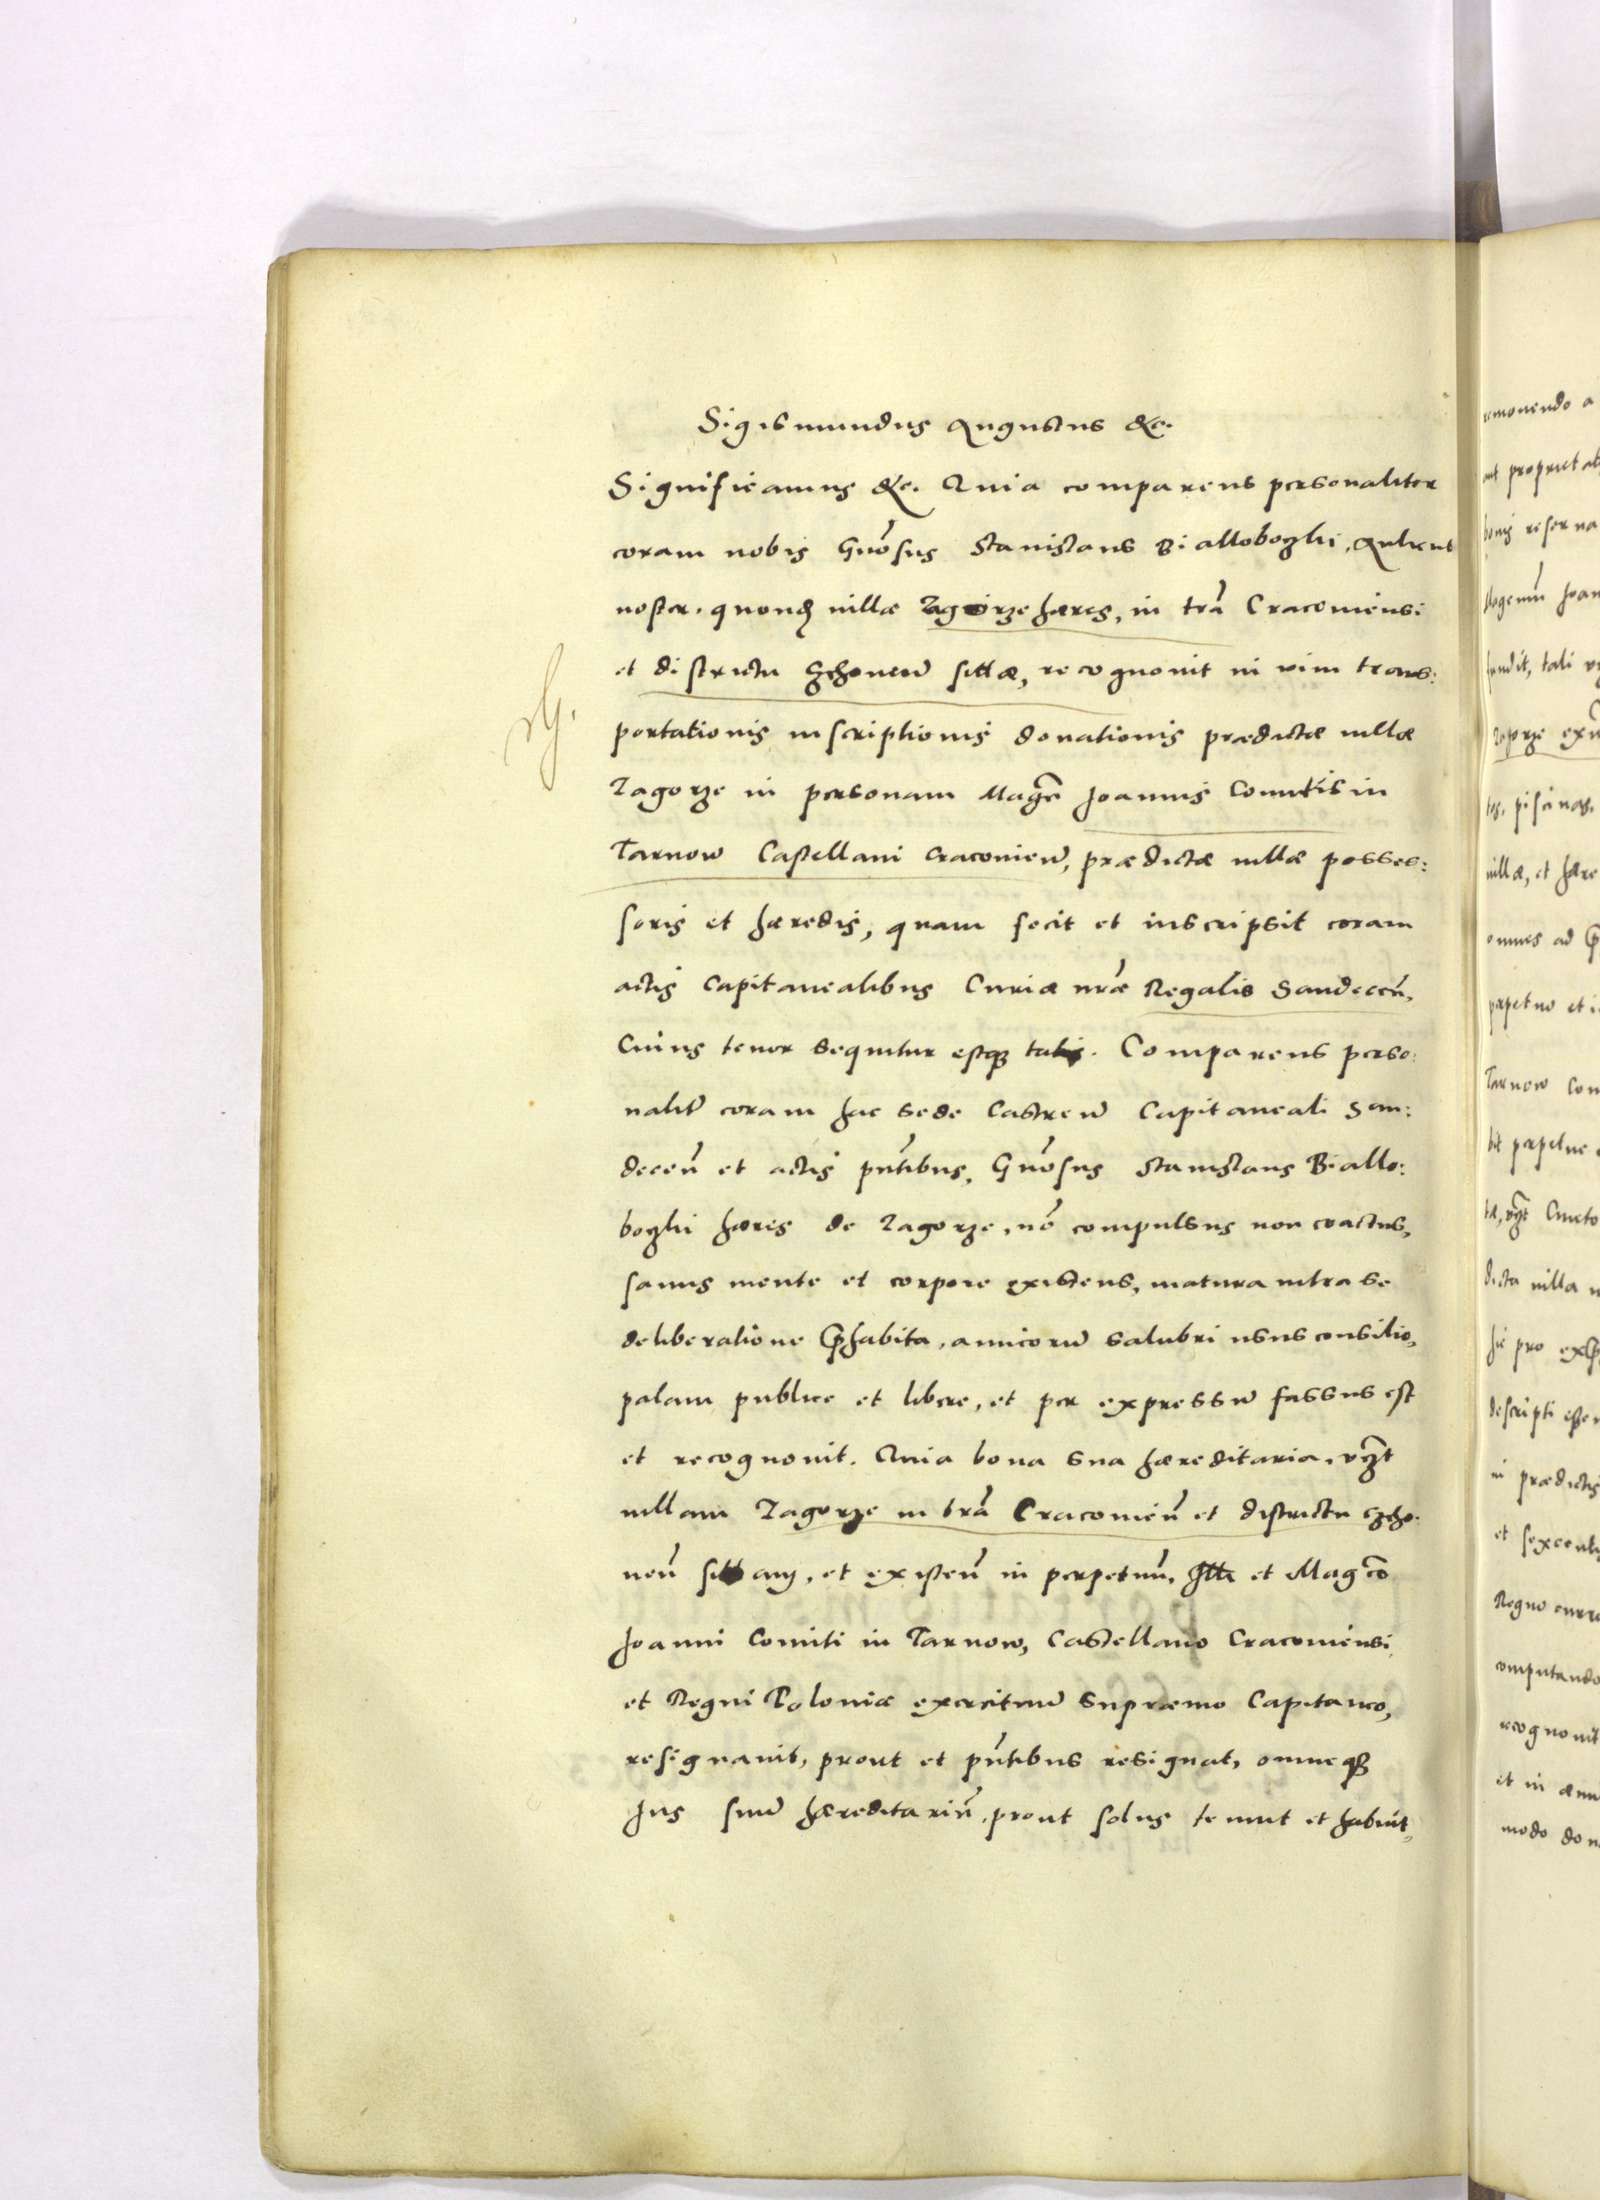 Sigismundus Augustus &c.
Significamus &c. Quia comparens personaliter
coram nobis Gnosus Stanislaus Bialloboczki, Aulicus
noster, quondam villæ Zagorze hæres, in tra Cracouiensi
et districtu Czchouen sittæ, recognouit in vim trans:
portationis inscriptionis donationis prædictæ villæ
Zagorze in personam Magci Joannis Comitis in
Tarnow Castellani Cracouien, prædictæ villæ posses:
soris et hæredis, quam fecit et inscripsit coram
actis Capitanealibus Curiæ nræ Regalis Sandecen,
Cuius tenor sequitur estque talis. Comparens perso:
nalit coram hac sede Castren Capitaneali San:
decen et actis pntibus, Gnosus Stanislaus Biallo:
boczki hæres de Zagorze, no compulsus non coactus,
sanus mente et corpore existens, matura intra se
deliberatione præhabita, amicoru salubri usus consilio,
palam publice et libere, et per expressu fassus est
et recognouit. Quia bona sua hæreditaria, vczt
villam Zagorze in tra Cracouien et districtu Czcho:
uen sittam, et existen in perpetuu, Illi et Magco
Joanni Comiti in Tarnow, Castellano Cracouiensi,
et Regni Poloniæ exercituu Supræmo Capitaneo,
resignauit, prout et pntibus resignat, omneque
Jus suu hæreditariu, prout solus tenuit et habuit,
remouendo a
aut proprietat
bonis reserua
Magcum Joan
tali
Zagorze
piscinas,
villæ, et hære
omnes ad
perpetuo et
Tarnow Com
perpetue
vczt Cmeto
dicta villa
pro
descripti
in prædictis
et sexcentis
Regno curre
computando
recognouit
et in
modo don